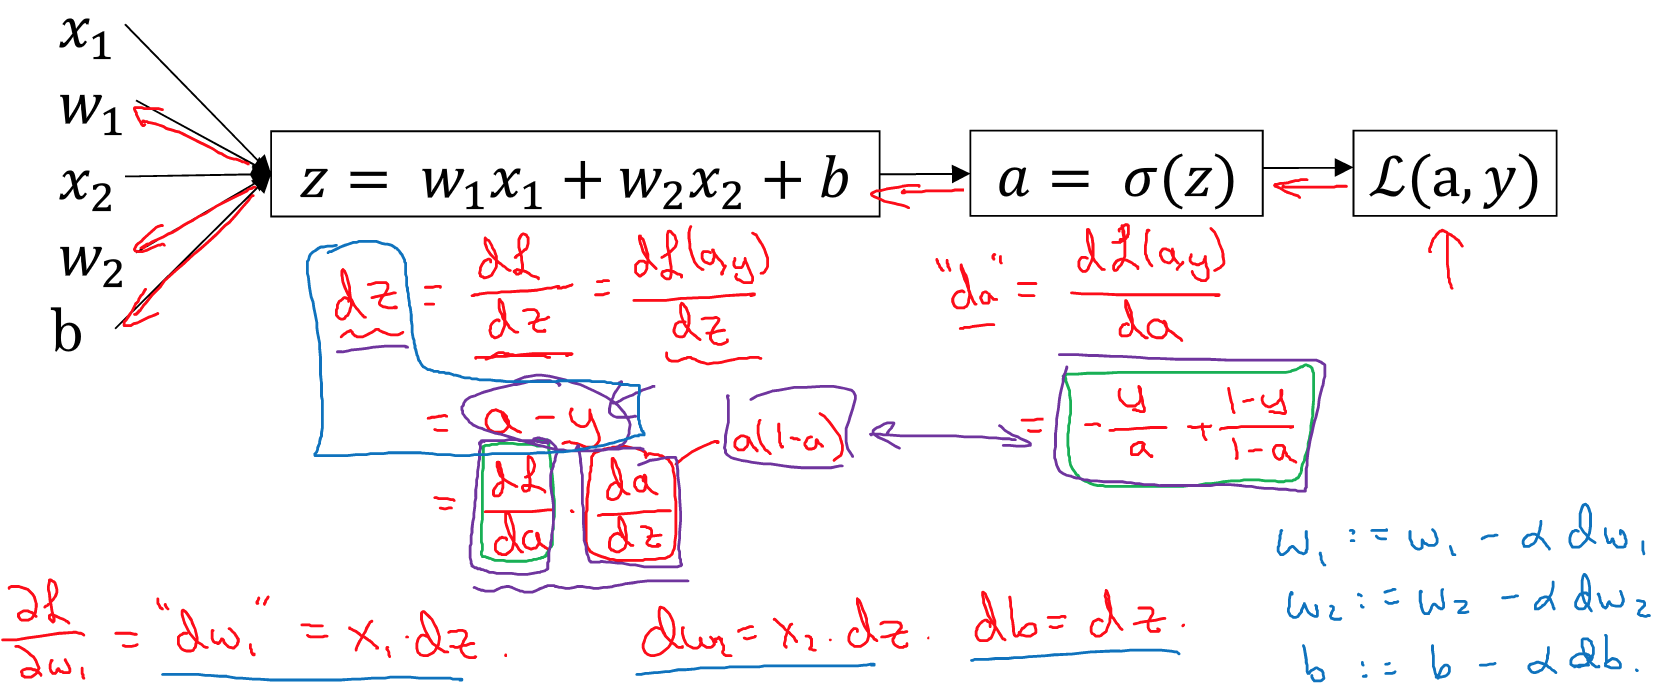 x₁
w₁
x₂
w₂
b
z = w₁x₁ + w₂x₂ + b
a = σ(z)
ℒ(a, y)
dz = dℒ/dz = dℒ(a,y)/dz
= a - y
= dℒ/da · da/dz
a(1-a)
"da" = dℒ(a,y)/da
= -y/a + 1-y/1-a
∂ℒ/∂w₁ = "dw₁" = x₁·dz.
dw₂ = x₂·dz.
db = dz.
w₁ := w₁ - α dw₁
w₂ := w₂ - α dw₂
b := b - α db.